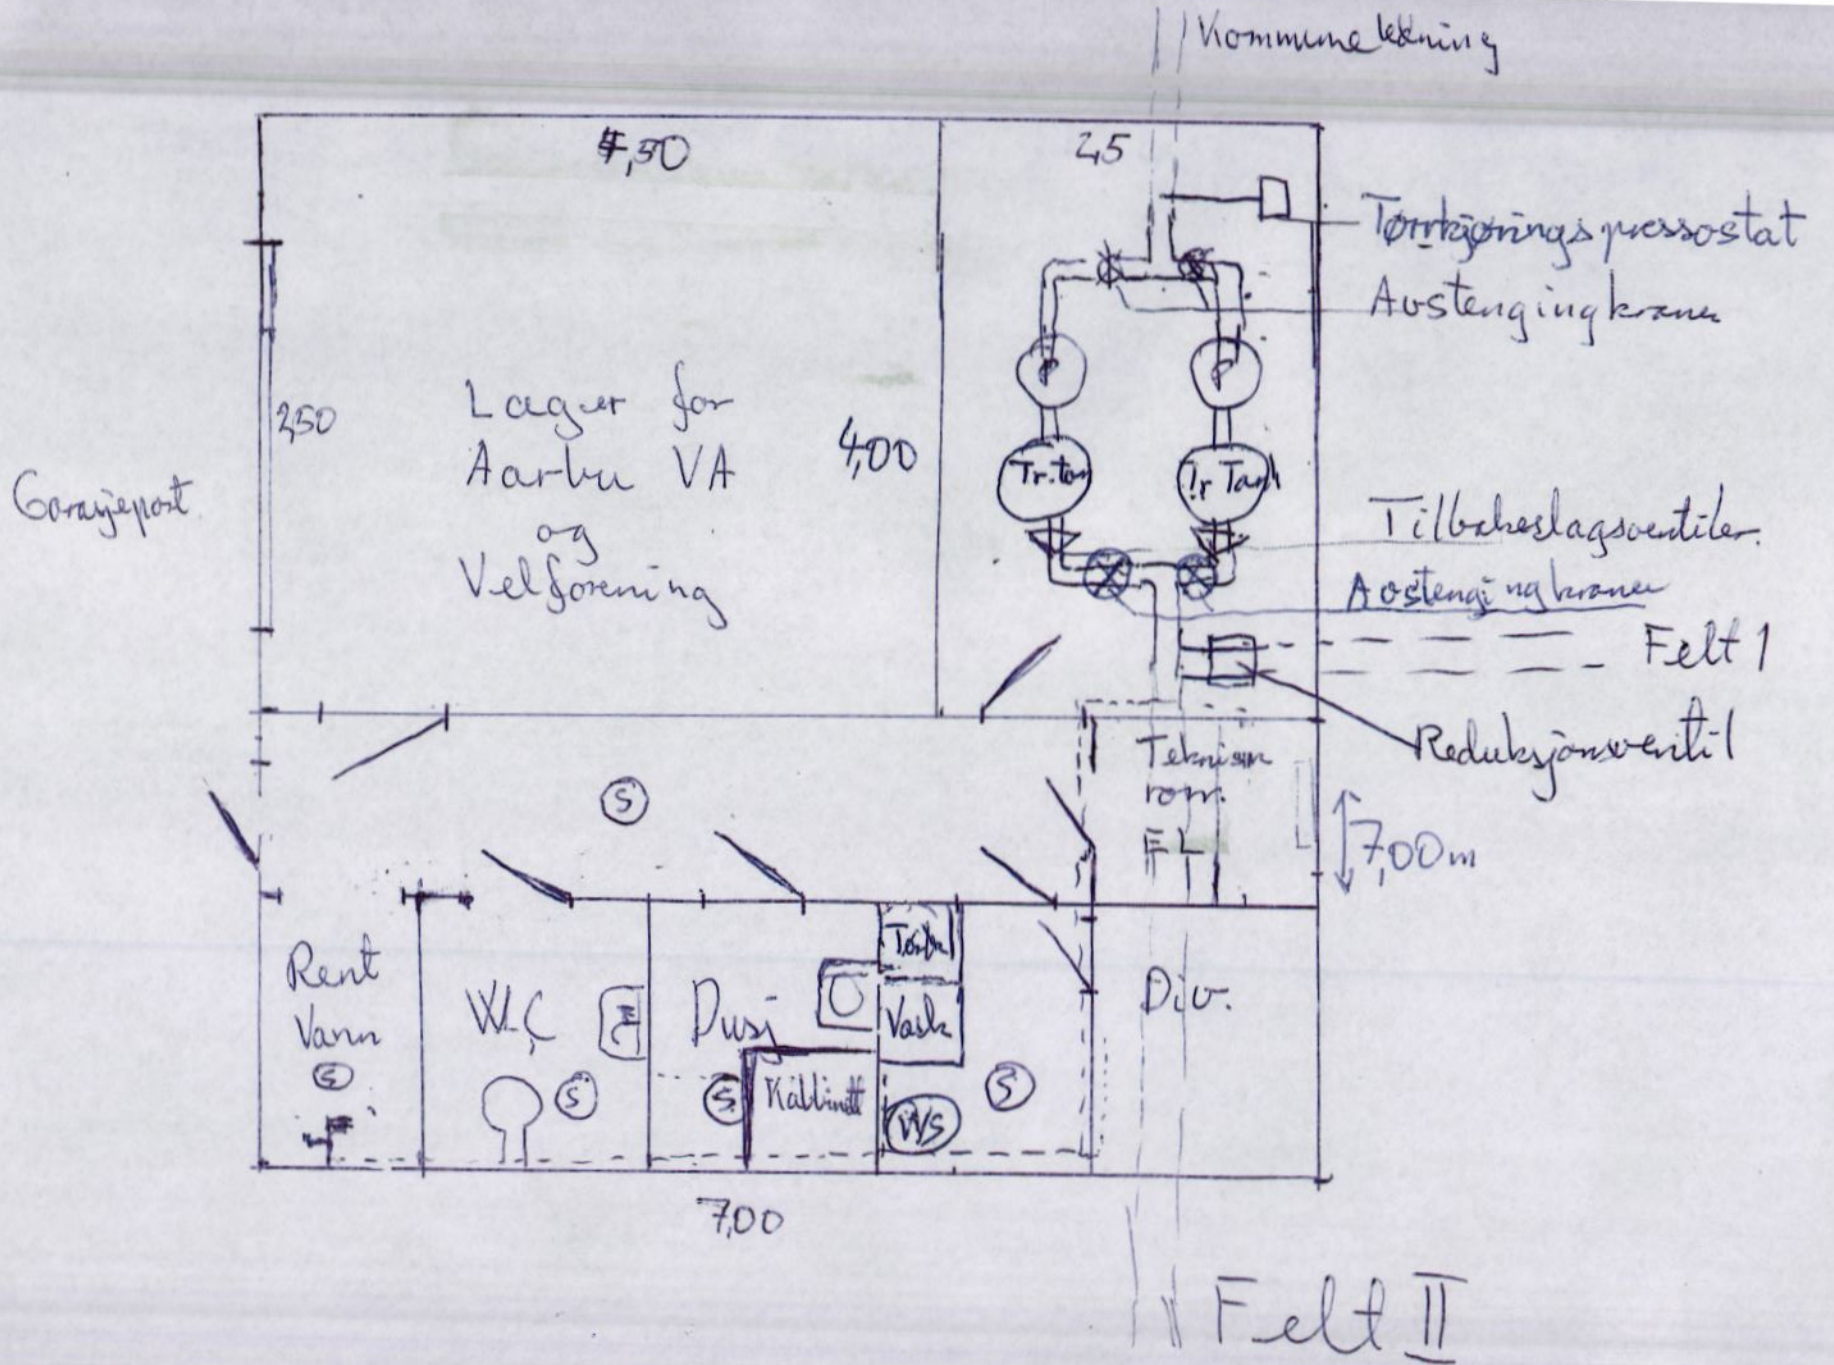 Kommuneledning
4,50
2,5
Tørrkjøringspressostat
Avstengingkraner
P
P
Garasjeport
2,50
Lager for
Aarbu VA
og
Velforening
4,00
Tr.tan
Tr Tank
Tilbakeslagsventiler
Avstengingkraner
Felt 1
Reduksjonsventil
Teknisk
rom.
EL
7,00m
S
Rent
Vann
S
WC
S
Dusj
S
Kabinett
Vask
VVS
S
Div.
7,00
Felt II